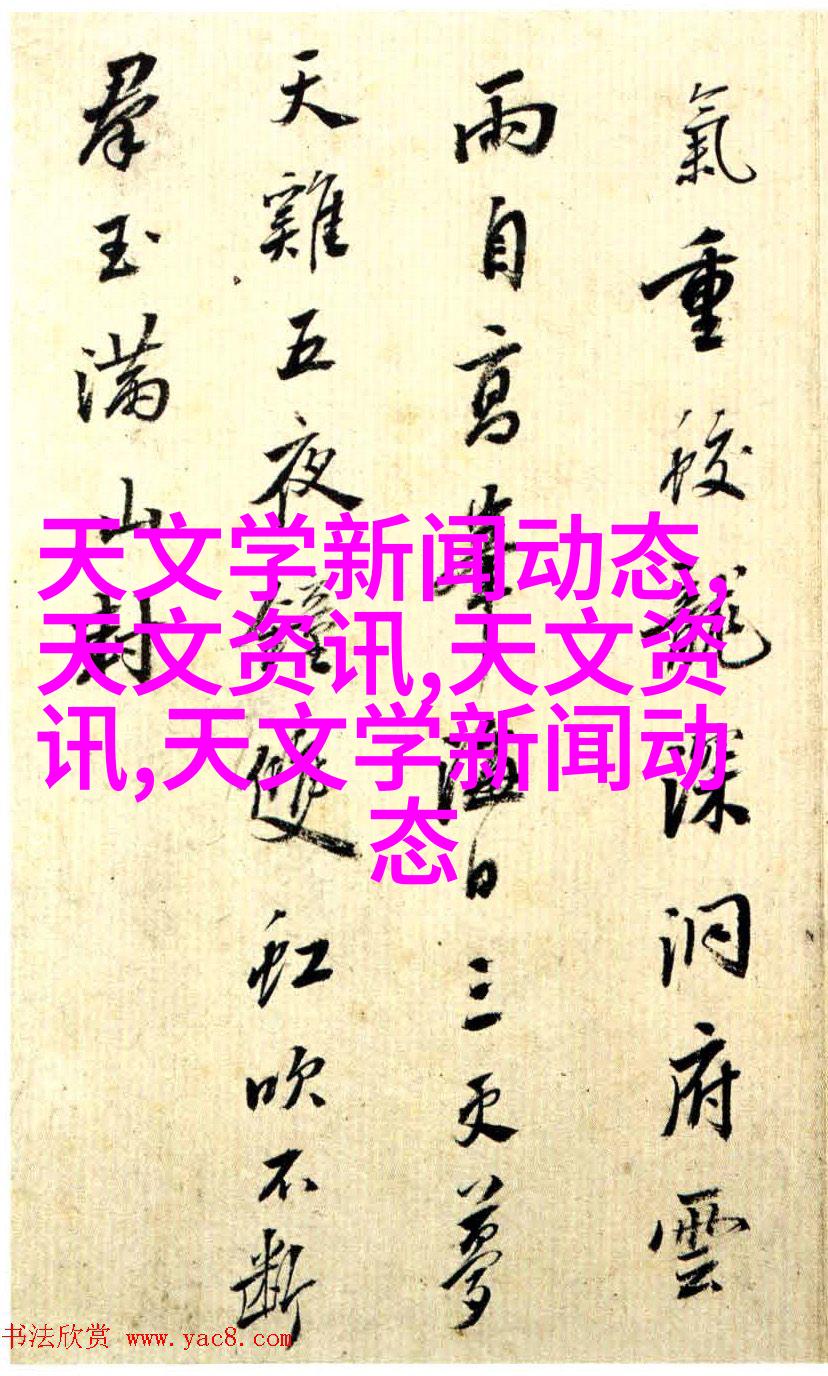 氣重蛟龍深洞府雲
雨自高峯海日三更夢
天雞五夜鐘雙虹吹不斷
羣玉滿山封
天文学新闻动态,
天文资讯,天文资
讯,天文学新闻动
态
书法欣赏 www.yac8.com